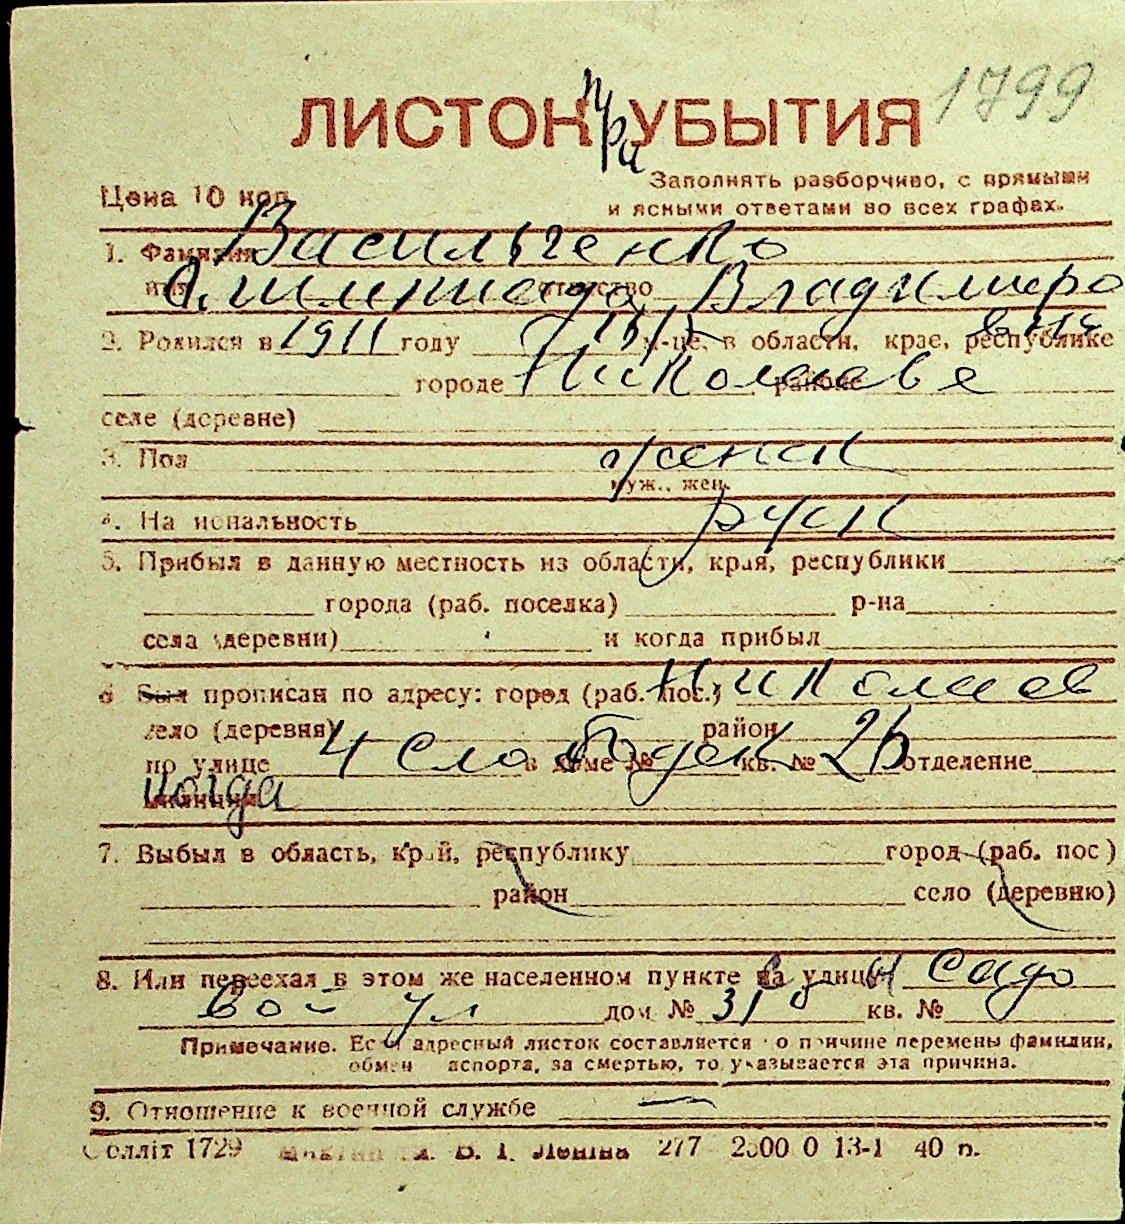 1799
ЛИСТОК при УБЫТИЯ
Цена 10 коп.
Заполнять разборчиво, с прямыми
и ясными ответами во всех графах.
1. Фамилия Васильченко
имя отчество Владимиро
2. Родился в 1911 году м-це, в области, крае, республике вна
городе Николаеве районе
селе (деревне)
3. Пол женск
муж., жен.
4. Национальность русск
5. Прибыл в данную местность из области, края, республики
города (раб. поселка) р-на
села (деревни) и когда прибыл
6 Был прописан по адресу: город (раб. пос.) Николаев
село (деревня) район
по улице 4 Слободск в доме № кв. № 26 отделение
милиции
7. Выбыл в область, край, республику город (раб. пос)
район село (деревню)
8. Или переехал в этом же населенном пункте на улицу Садо
вой ул дом № 31 кв. №
Примечание. Если адресный листок составляется по причине перемены фамилии,
обмен паспорта, за смертью, то указывается эта причина.
9. Отношение к военной службе —
Облліт 1729 В. І. Леніна 277 2500 0 13-1 40 п.